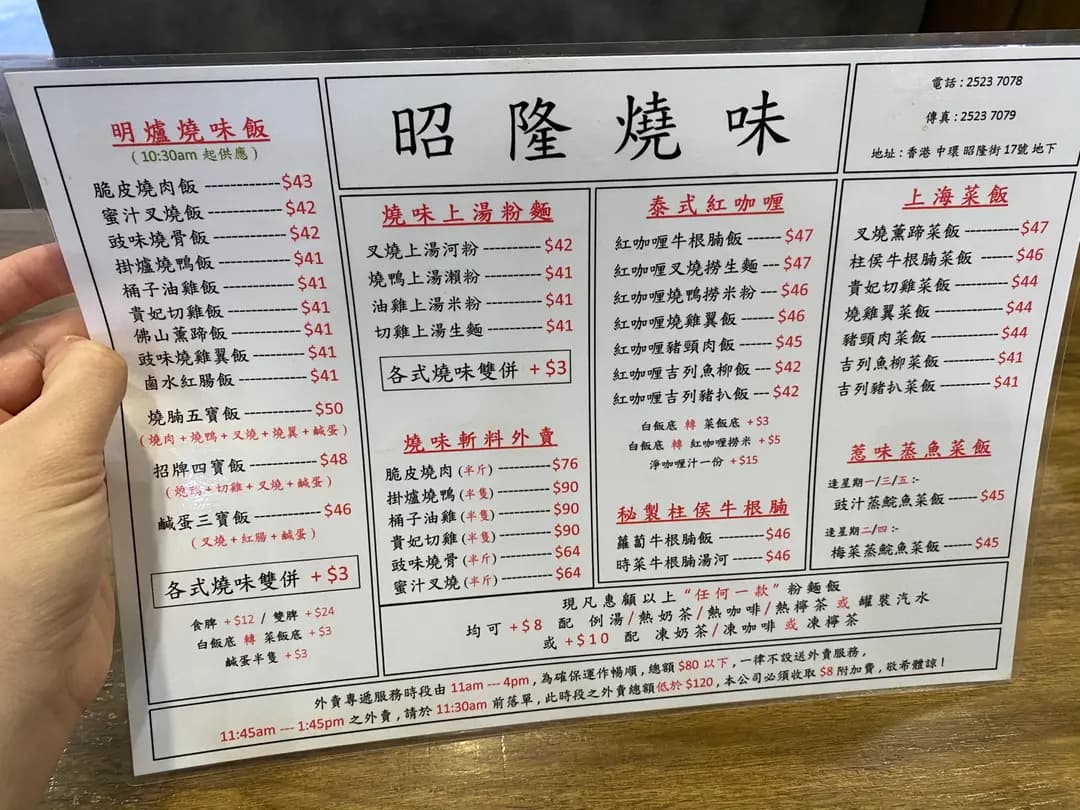 昭隆燒味
電話 : 2523 7078
傳真 : 2523 7079
地址 : 香港 中環 昭隆街 17號 地下
明爐燒味飯
( 10:30am 起供應 )
脆皮燒肉飯 -------------$43
蜜汁叉燒飯 -------------$42
豉味燒骨飯 -------------$42
掛爐燒鴨飯 -------------$41
桶子油雞飯 -------------$41
貴妃切雞飯 -------------$41
佛山薰蹄飯 -------------$41
豉味燒雞翼飯 ----------$41
鹵水紅腸飯 -------------$41
燒腩五寶飯 -------------$50
( 燒肉 + 燒鴨 + 叉燒 + 燒翼 + 鹹蛋 )
招牌四寶飯 -------------$48
( 燒鴨 + 切雞 + 叉燒 + 鹹蛋 )
鹹蛋三寶飯 -------------$46
( 叉燒 + 紅腸 + 鹹蛋 )
各式燒味雙併 + $3
食髀 + $12 / 雙髀 + $24
白飯底 轉 菜飯底 + $3
鹹蛋半隻 + $3
燒味上湯粉麵
叉燒上湯河粉 ----------$42
燒鴨上湯瀨粉 ----------$41
油雞上湯米粉 ----------$41
切雞上湯生麵 ----------$41
各式燒味雙併 + $3
燒味斬料外賣
脆皮燒肉 (半斤) ---------$76
掛爐燒鴨 (半隻) ---------$90
桶子油雞 (半隻) ---------$90
貴妃切雞 (半隻) ---------$90
豉味燒骨 (半斤) ---------$64
蜜汁叉燒 (半斤) ---------$64
泰式紅咖喱
紅咖喱牛根腩飯 ------$47
紅咖喱叉燒撈生麵 ---$47
紅咖喱燒鴨撈米粉 ---$46
紅咖喱燒雞翼飯 ------$46
紅咖喱豬頸肉飯 ------$45
紅咖喱吉列魚柳飯 ---$42
紅咖喱吉列豬扒飯 ---$42
白飯底 轉 菜飯底 + $3
白飯底 轉 紅咖喱撈米 + $5
淨咖喱汁一份 + $15
秘製柱侯牛根腩
蘿蔔牛根腩飯 ---------$46
時菜牛根腩湯河 ------$46
上海菜飯
叉燒薰蹄菜飯 ----------$47
柱侯牛根腩菜飯 ------$46
貴妃切雞菜飯 ----------$44
燒雞翼菜飯 -------------$44
豬頸肉菜飯 -------------$44
吉列魚柳菜飯 ----------$41
吉列豬扒菜飯 ----------$41
惹味蒸魚菜飯
逢星期一/三/五 :-
豉汁蒸鯇魚菜飯 ------$45
逢星期二/四 :-
梅菜蒸鯇魚菜飯 ------$45
現凡惠顧以上 “任何一款” 粉麵飯
均可 + $8 配 例湯 / 熱奶茶 / 熱咖啡 / 熱檸茶 或 罐裝汽水
或 + $10 配 凍奶茶 / 凍咖啡 或 凍檸茶
外賣專遞服務時段由 11am --- 4pm , 為確保運作暢順 , 總額 $80 以下 , 一律不設送外賣服務 ,
11:45am --- 1:45pm 之外賣 , 請於 11:30am 前落單 , 此時段之外賣總額低於 $120 , 本公司必須收取 $8 附加費 , 敬希體諒 !